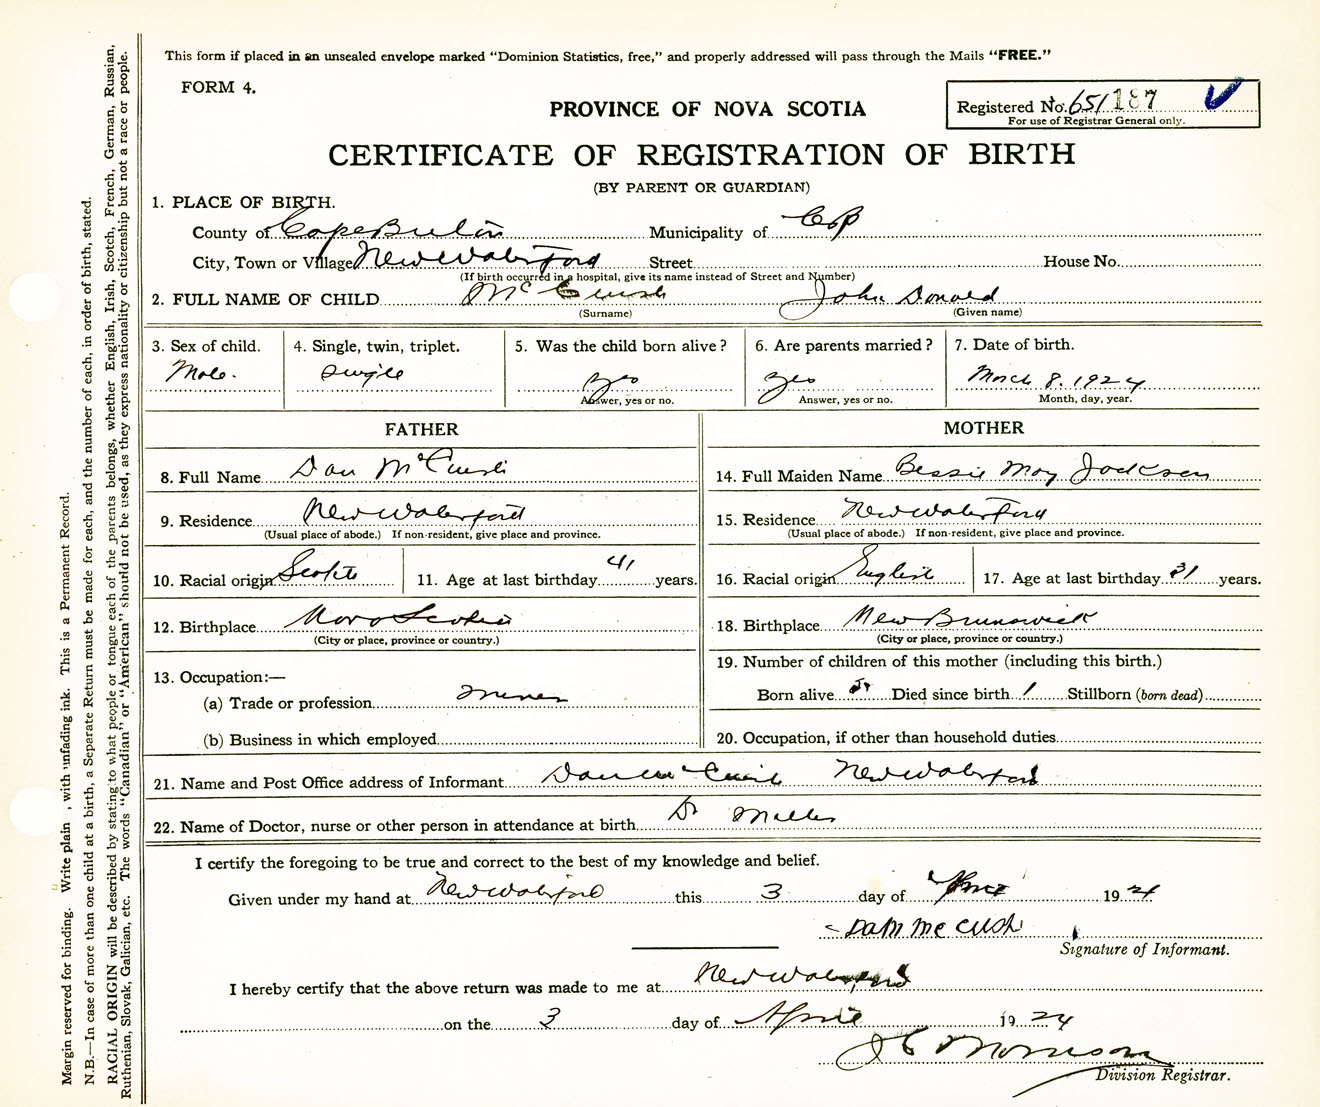 This form if placed in an unsealed envelope marked "Dominion Statistics, free," and properly addressed will pass through the Mails "FREE."
FORM 4.
PROVINCE OF NOVA SCOTIA
Registered No. 651187
For use of Registrar General only.
CERTIFICATE OF REGISTRATION OF BIRTH
(BY PARENT OR GUARDIAN)
1. PLACE OF BIRTH.
County of Cape Breton Municipality of CB
City, Town or Village New Waterford Street House No.
(If birth occurred in a hospital, give its name instead of Street and Number)
2. FULL NAME OF CHILD McCuish John Donald
(Surname) (Given name)
3. Sex of child. 4. Single, twin, triplet. 5. Was the child born alive? 6. Are parents married? 7. Date of birth.
Male. single yes yes March 8. 1924
Answer, yes or no. Answer, yes or no. Month, day, year.
FATHER MOTHER
8. Full Name Dan McCuish 14. Full Maiden Name Bessie May Jackson
9. Residence New Waterford 15. Residence New Waterford
(Usual place of abode.) If non-resident, give place and province. (Usual place of abode.) If non-resident, give place and province.
10. Racial origin Scotch 11. Age at last birthday 41 years. 16. Racial origin English 17. Age at last birthday 31 years.
12. Birthplace Nova Scotia 18. Birthplace New Brunswick
(City or place, province or country.) (City or place, province or country.)
13. Occupation:— 19. Number of children of this mother (including this birth.)
(a) Trade or profession miner Born alive 5 Died since birth 1 Stillborn (born dead)
(b) Business in which employed 20. Occupation, if other than household duties
21. Name and Post Office address of Informant Dan McCuish New Waterford
22. Name of Doctor, nurse or other person in attendance at birth Dr Miller
I certify the foregoing to be true and correct to the best of my knowledge and belief.
Given under my hand at New Waterford this 3 day of April 1924
Dan McCush
Signature of Informant.
I hereby certify that the above return was made to me at New Waterford
on the 3 day of April 1924
J C Morrison
Division Registrar.
Margin reserved for binding. Write plain , with unfading ink. This is a Permanent Record.
N.B.—In case of more than one child at a birth, a Separate Return must be made for each, and the number of each, in order of birth, stated.
RACIAL ORIGIN will be described by stating to what people or tongue each of the parents belongs, whether English, Irish, Scotch, French, German, Russian,
Ruthenian, Slovak, Galician, etc. The words "Canadian" or "American" should not be used, as they express nationality or citizenship but not a race or people.